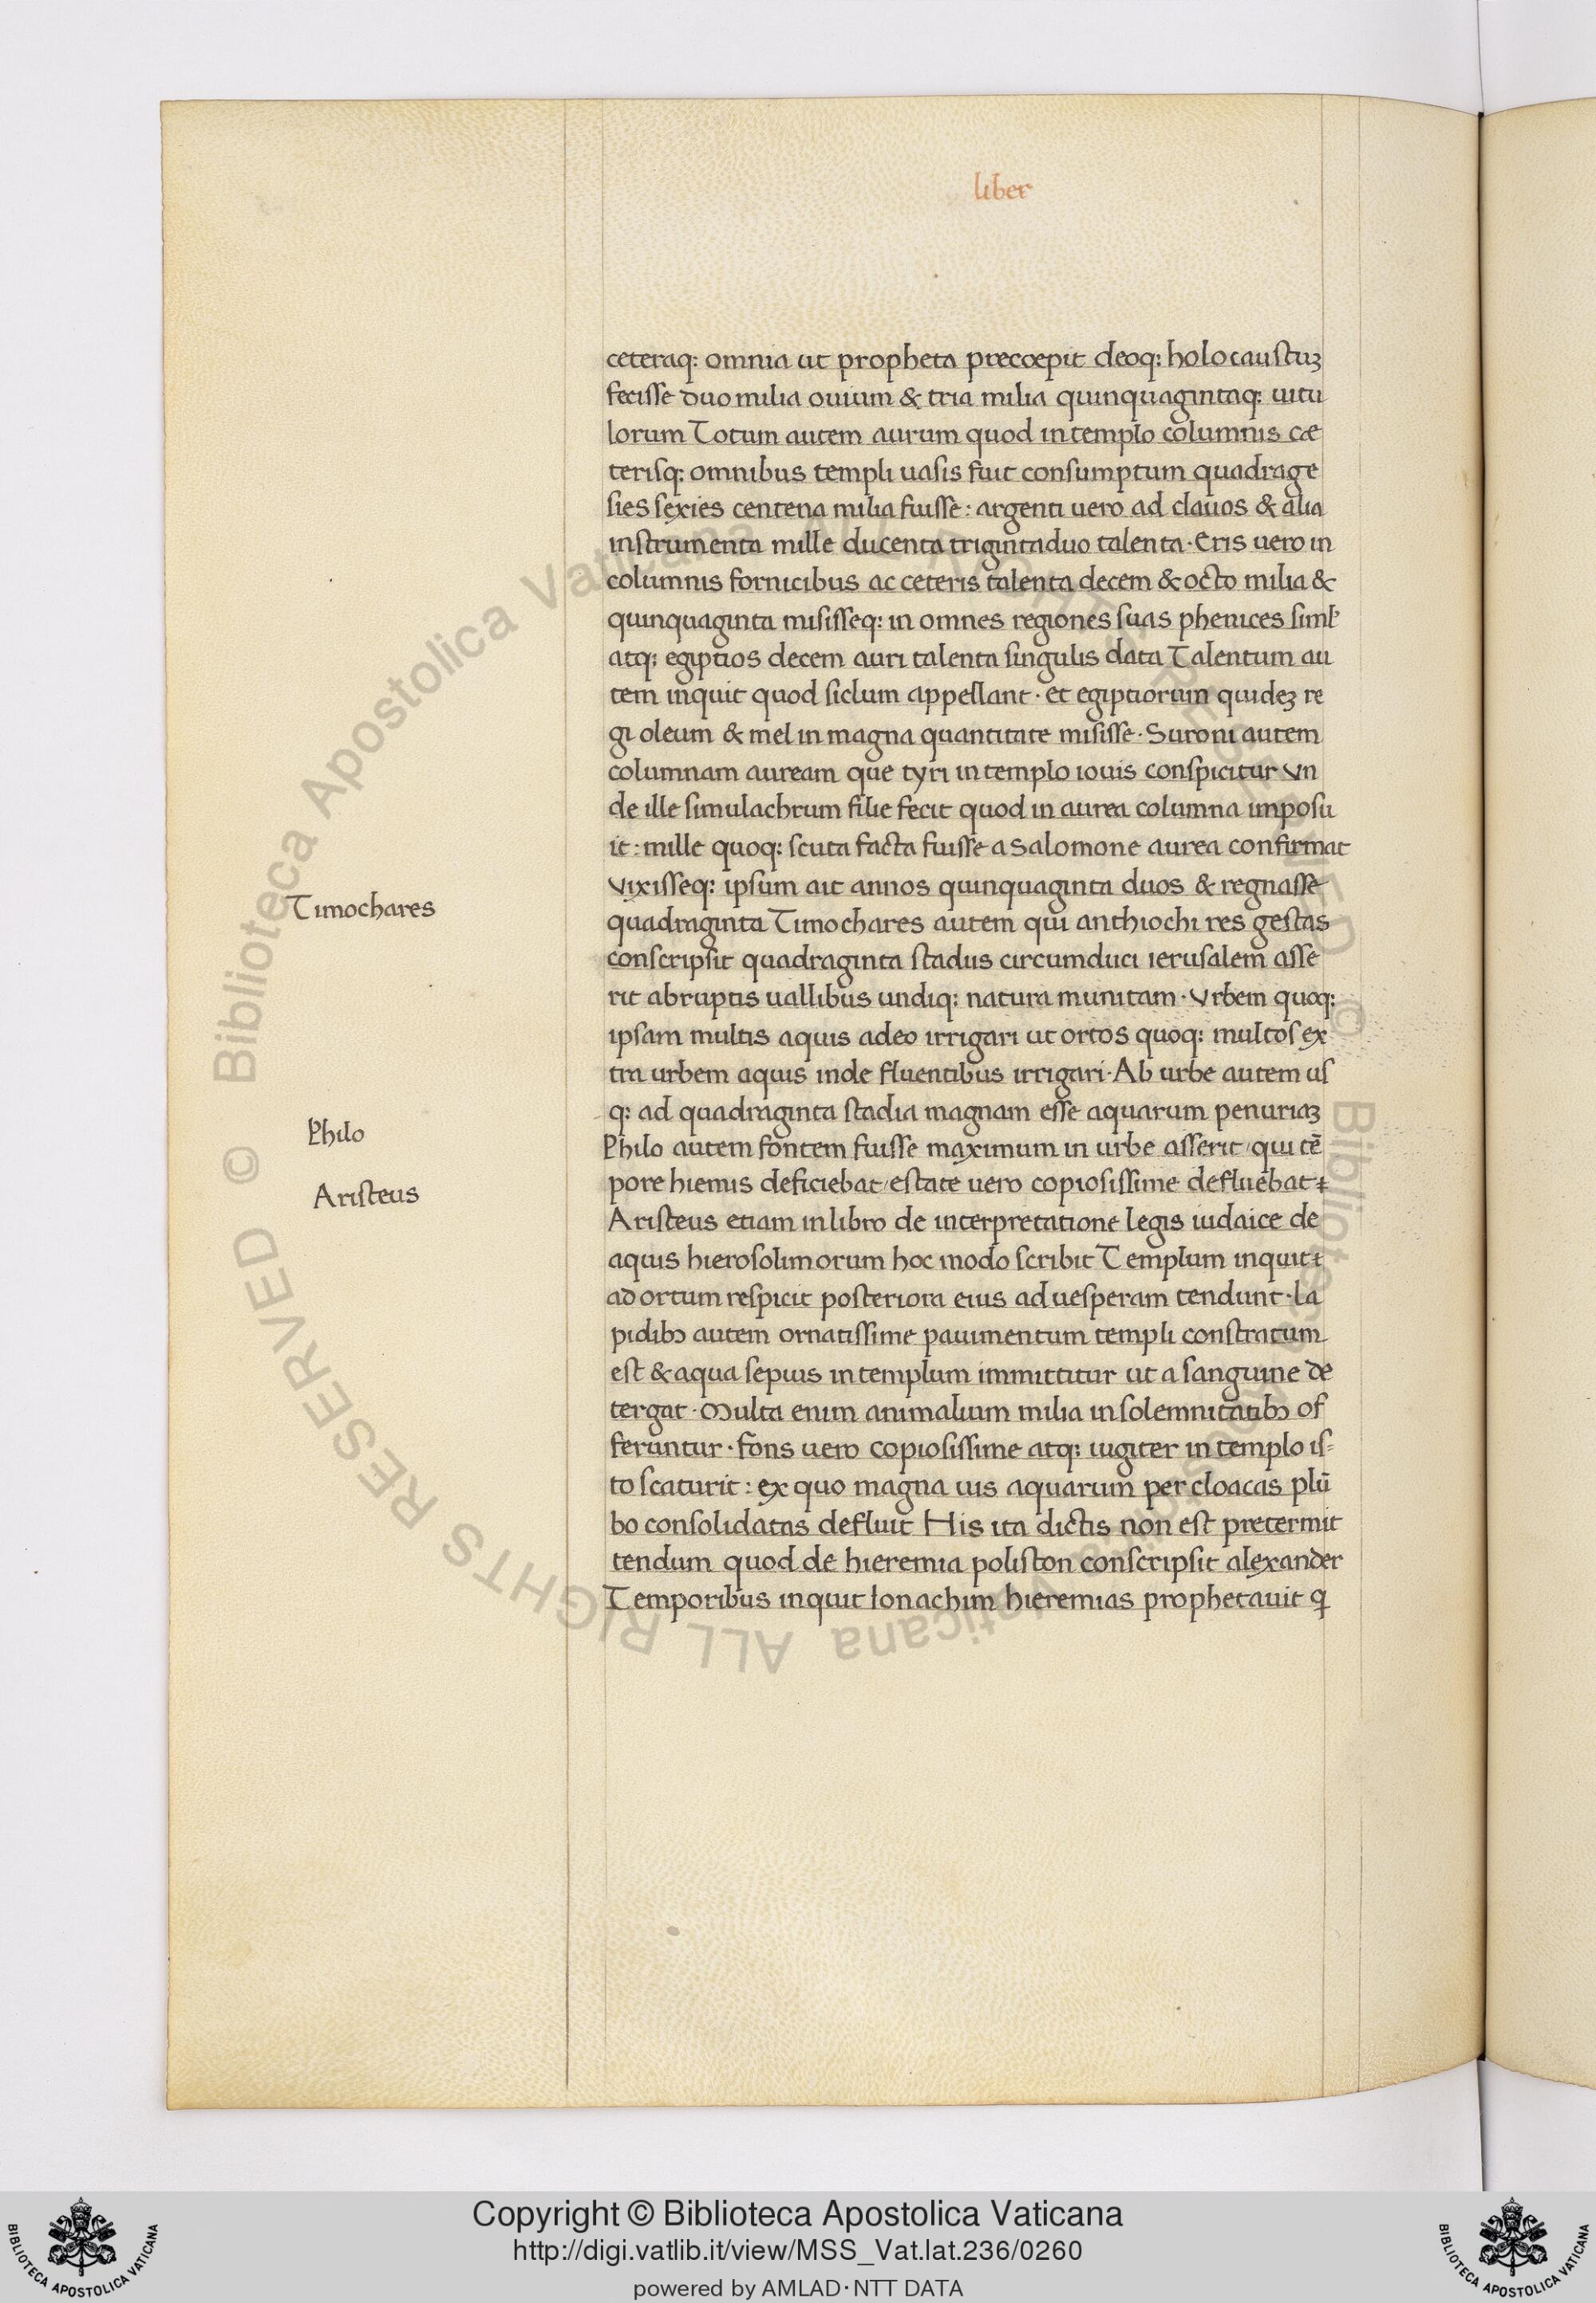 liber
ceteraq: omnia ut propheta precoepit deoq: holocaustuʒ
fecisse duo milia ouium & tria milia quinquagintaq: uitu
lorum Totum autem aurum quod in templo columnis cæ
terisq: omnibus templi uasis fuit consumptum quadrage
sies sexies centena milia fuisse: argenti uero ad clauos & alia
instrumenta mille ducenta trigintaduo talenta · Eris uero in
columnis fornicibus ac ceteris talenta decem & octo milia &
quinquaginta misisseq: in omnes regiones suas phenices siml'
atq: egiptios decem auri talenta singulis data Talentum au
tem inquit quod siclum appellant · et egiptiorum quideʒ re
gi oleum & mel in magna quantitate misisse · Suroni autem
columnam auream que tyri in templo iouis conspicitur Vn
de ille simulachrum filie fecit quod in aurea columna imposu
it: mille quoq: scuta facta fuisse a Salomone aurea confirmat
Vixisseq: ipsum ait annos quinquaginta duos & regnasse
Timochares
quadraginta Timochares autem qui anthiochi res gestas
conscripsit quadraginta stadus circumduci ierusalem asse
rit abruptis uallibus undiq: natura munitam · Vrbem quoq:
ipsam multis aquis adeo irrigari ut ortos quoq: multos ex
tra urbem aquis inde fluentibus irrigari · Ab urbe autem us
q: ad quadraginta stadia magnam esse aquarum penuriaʒ
Philo
Philo autem fontem fuisse maximum in urbe asserit / qui tē
pore hiemis deficiebat / estate uero copiosissime defluebat
Aristeus
Aristeus etiam in libro de interpretatione legis iudaice de
aquis hierosolimorum hoc modo scribit Templum inquit
ad ortum respicit posteriora eius ad uesperam tendunt · la
pidibꝫ autem ornatissime pauimentum templi constratum
est & aqua sepius in templum immittitur ut a sanguine de
tergat · Multa enim animalium milia in solemnitatibꝫ of
feruntur · fons uero copiosissime atq: iugiter in templo is-
to scaturit: ex quo magna uis aquarum per cloacas plū
bo consolidatas defluit His ita dictis non est pretermit
tendum quod de hieremia poliston conscripsit alexander
Temporibus inquit Ionachim hieremias prophetauit
Copyright © Biblioteca Apostolica Vaticana
http://digi.vatlib.it/view/MSS_Vat.lat.236/0260
powered by AMLAD · NTT DATA